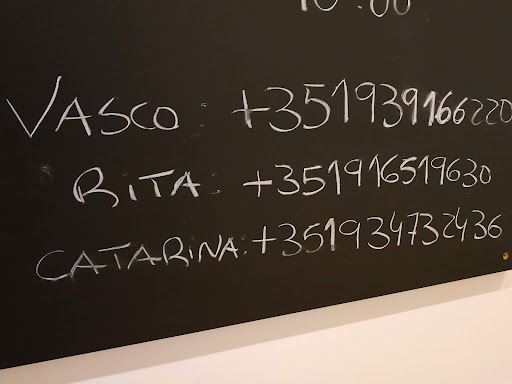 10:00
VASCO: +351939166220
RITA: +351916519630
CATARINA: +351934732436